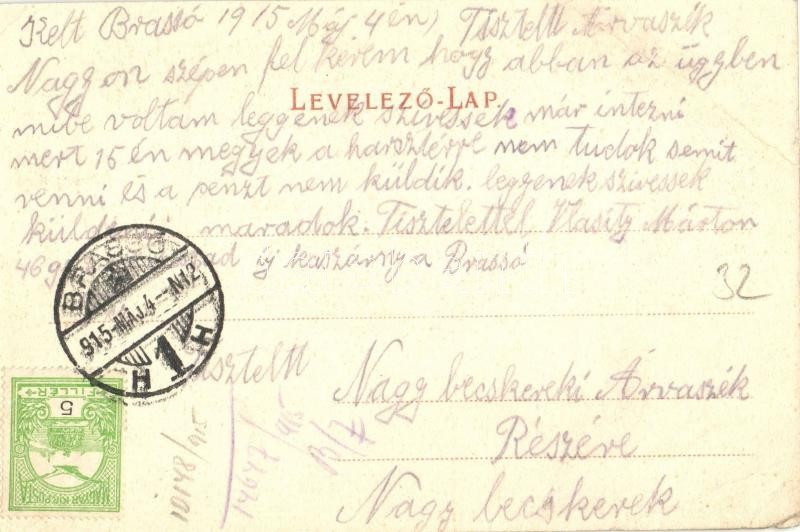 Kelt Brassó 1915 Máj 4én) Tisztelt Árvaszék
Nagyon szépen fel kérem hogy abban az ügyben
LEVELEZŐ-LAP.
mibe voltam leggenek szivessek már intezni
mert 15én megyek a harsztérre nem tudok semit
venni és a penzt nem küldik. leggenek szivessek
maradok. Tisztelettel, Vlasitz Márton
46 új kaszárnya Brassó
32
BRASSÓ
915-MÁJ.4-N12
H 1 H
Tisztelt
Nagy becskereki Árvaszék
Részére
Nagy becskerek
10148/915
14647/915
B/7
5
FILLÉR
MAGYAR KIR. POSTA